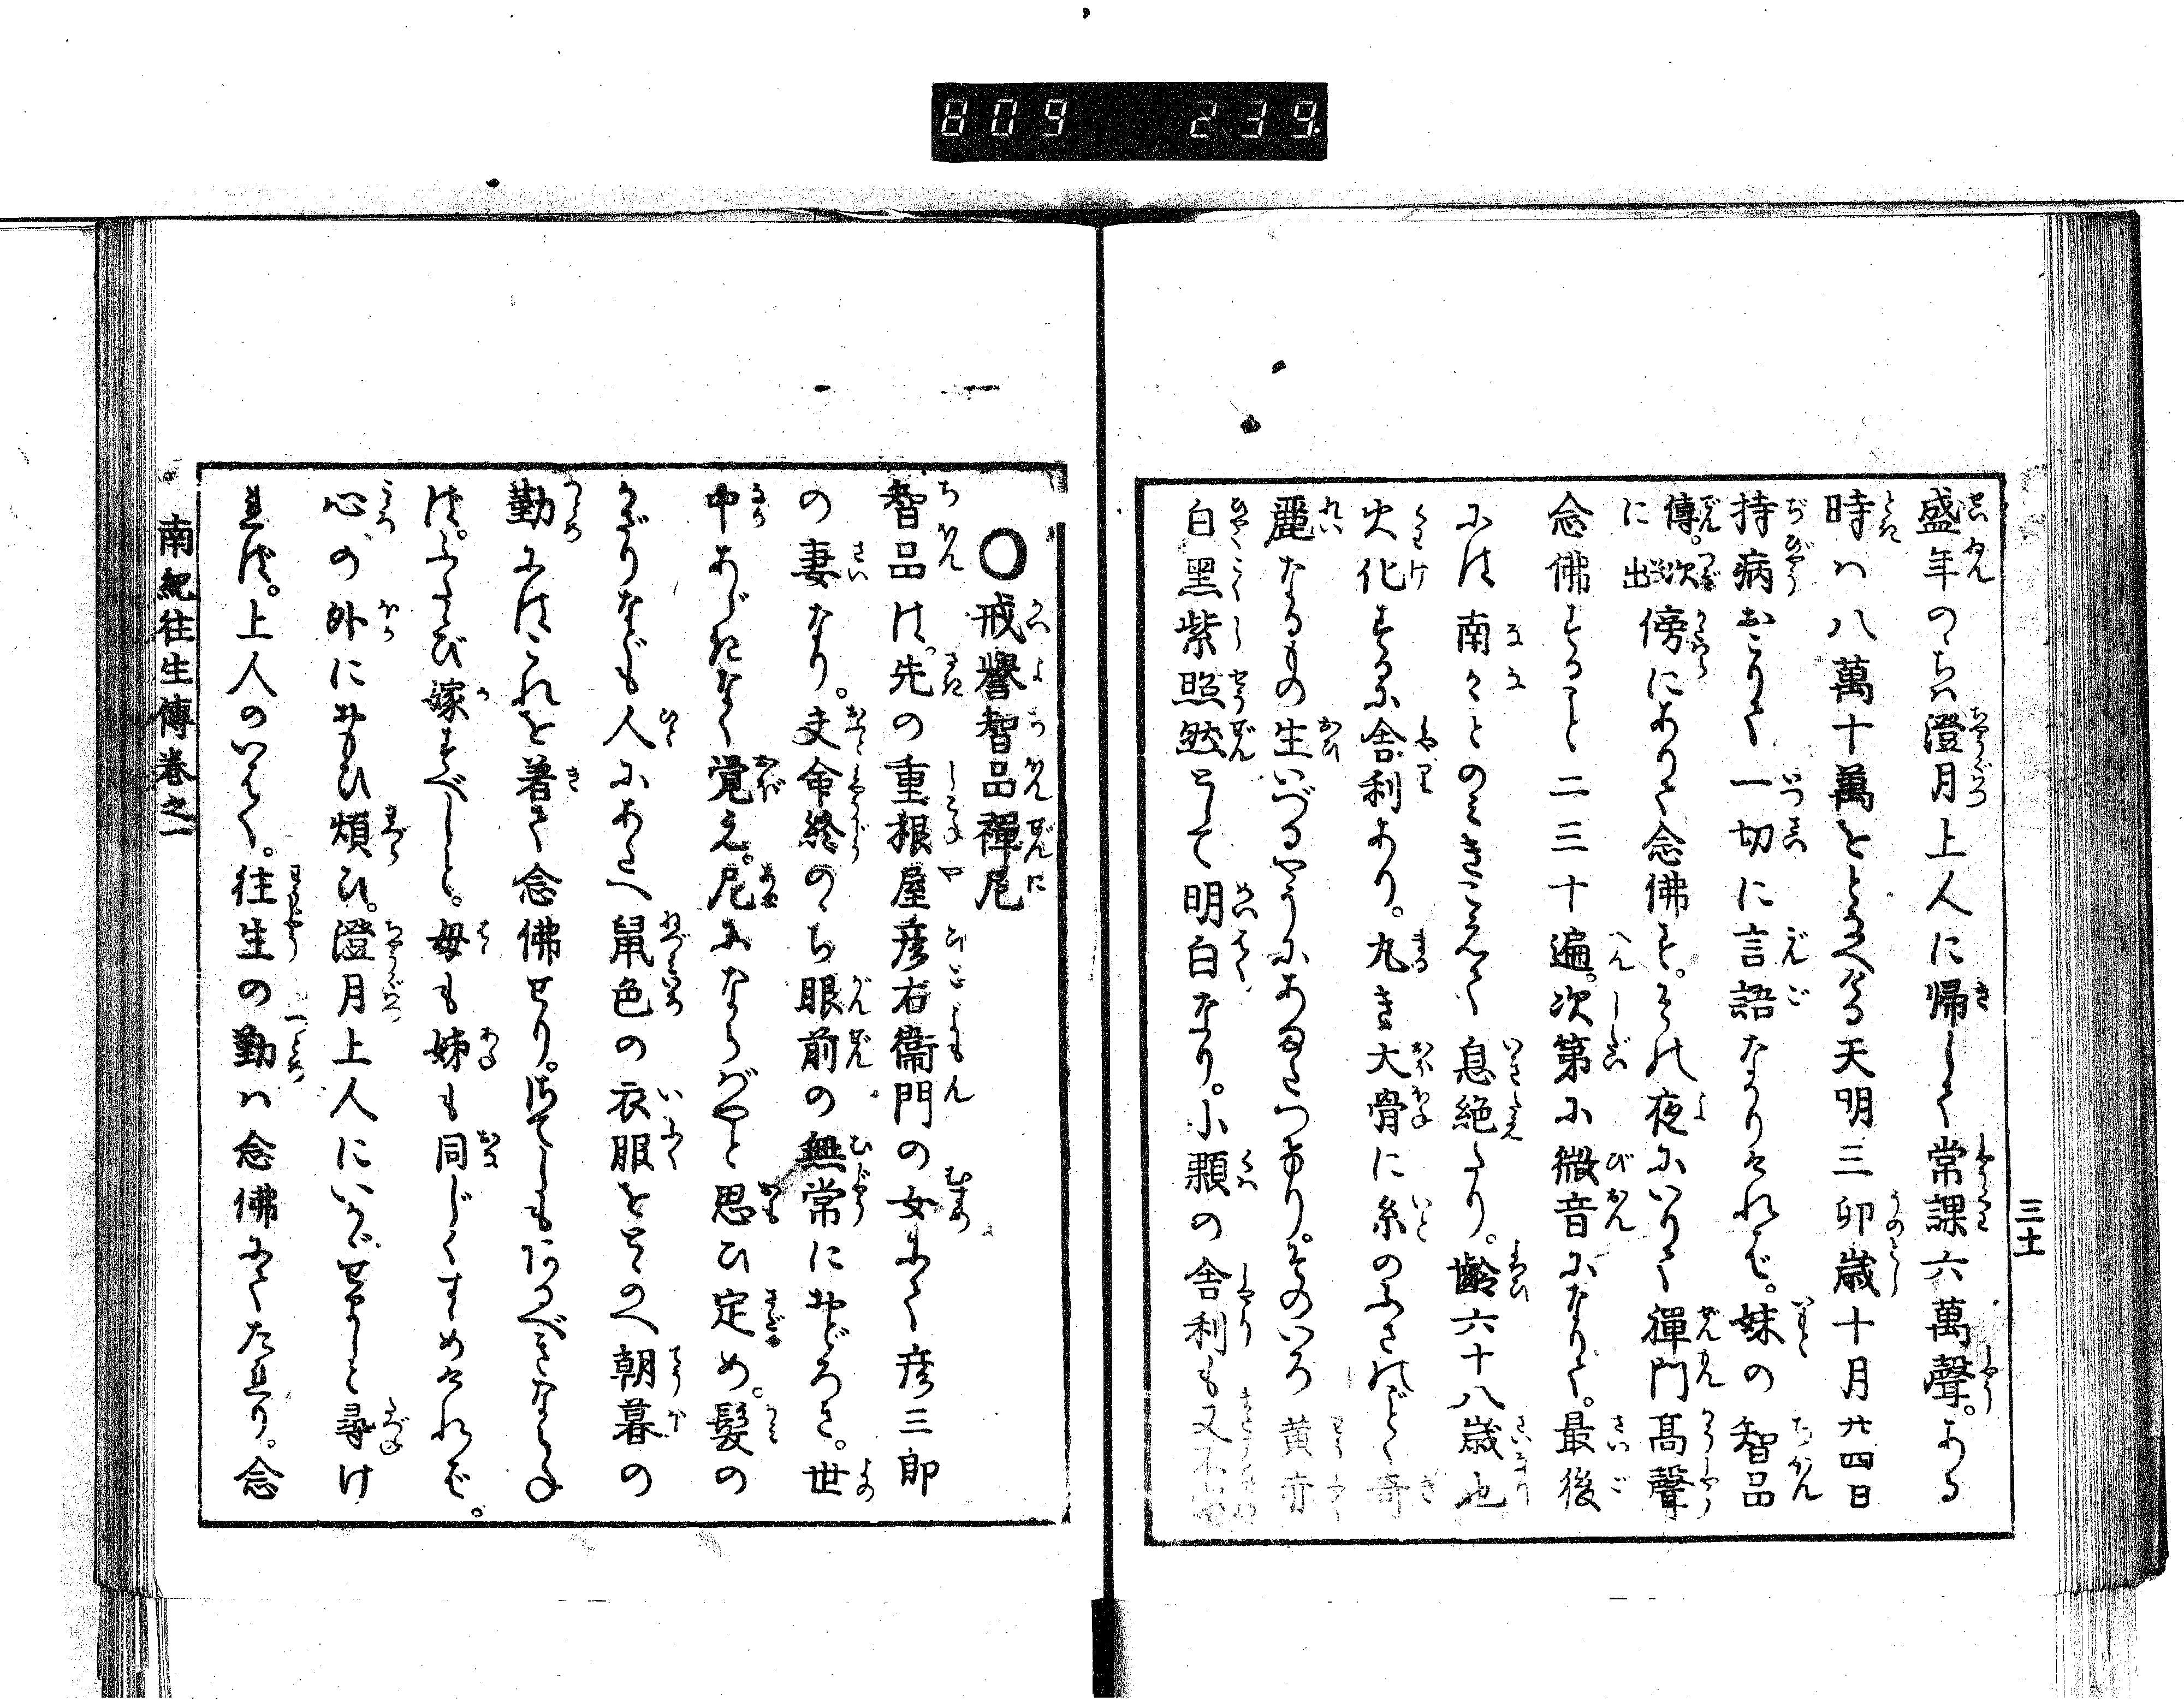 809 239.
三十
盛年のちハ澄月上人に帰して常課六萬聲。ある
時ハ八萬十萬をとなへける天明三卯歳十月廿四日
持病おこりて一切に言語なかりけれバ。妹の智品
傳。次に出傍にありて念佛す。その夜にいりて禪門髙聲
念佛すること二三十遍。次第に微音になりて。最後
にハ南々とのミきこえて息絶たり。齡六十八歳也
火化するに舎利あり。丸き大骨に糸のふさのごとく奇
麗なるもの生いづるやうにあまたつきたり。そのいろ黄赤
白黑紫照然として明白なり。小顆の舎利も又
〇戒譽智品禪尼
智品は。先の重根屋彦右衞門の女にて彦三郎
の妻なり。夫命終のち眼前の無常におどろき。世
中あぢきなく覚え。尼にならばやと思ひ定め。髪の
かざりなども人にあたへ鼠色の衣服をとゝのへ朝暮の
勤にはこれを着て念佛せり。はてしもあるべきならね
ば。ふたゝび嫁すべしと。母も姊も同じくすゝめけれバ。
心の外におもひ煩ひ。澄月上人にいかゞせましと尋け
れば。上人のいはく。往生の勤ハ念佛にてたれり。念
南紀往生傳巻之一